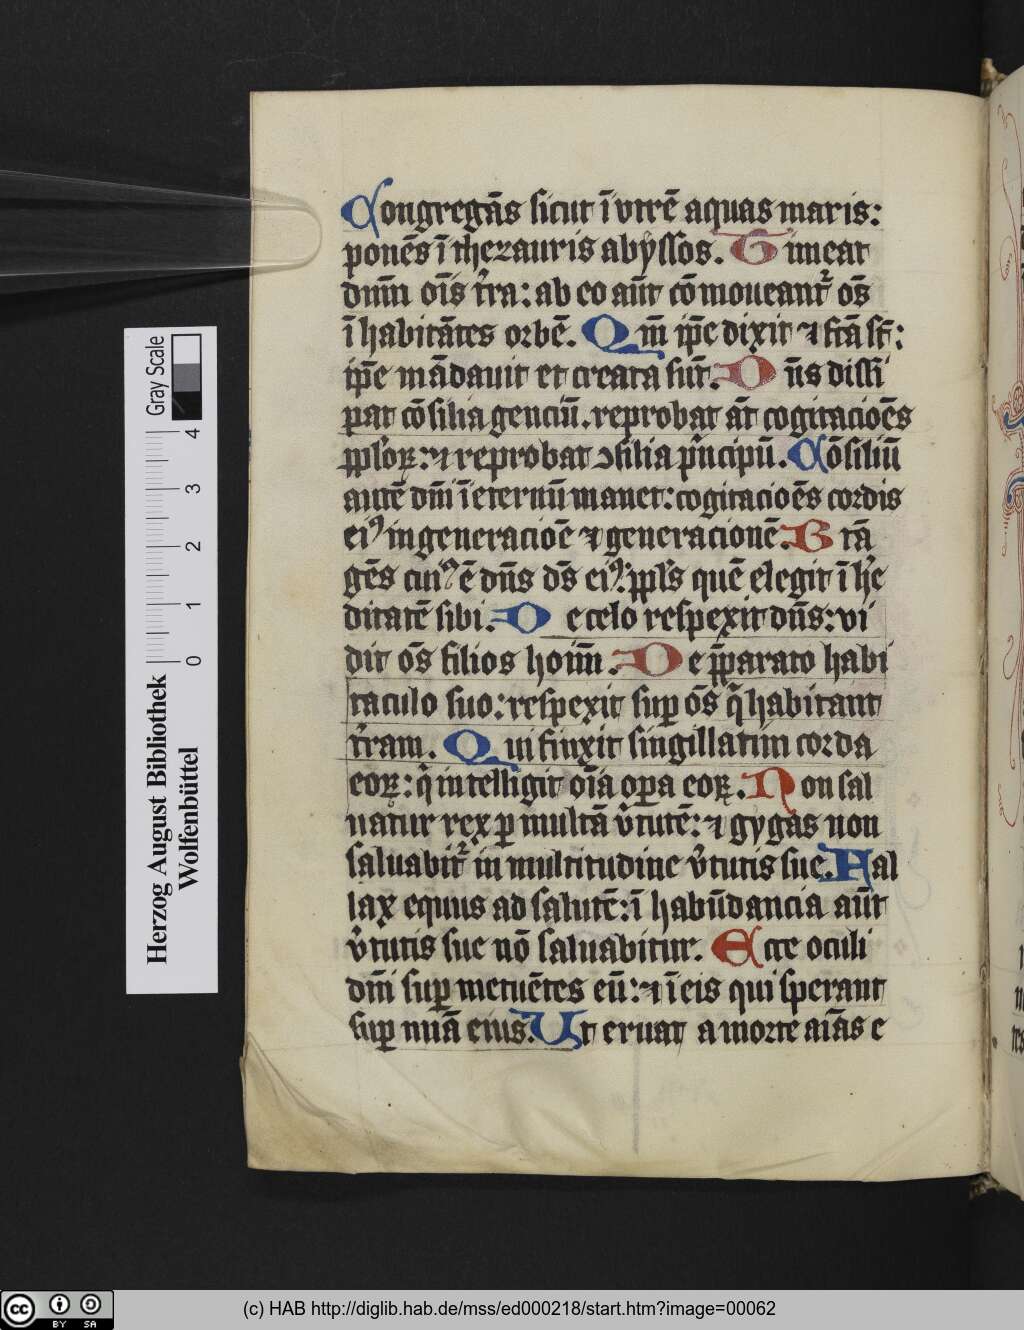 Congregās sicut ī vtrē aquas maris:
ponēs ī thezauris abyssos. Timeat
dnm̄ oīs t̓ra: ab eo aūt cōmoueant᷑ oēs
ī habitātes orbē. Qm̄ ip̄e dixit ⁊ fcā st̄:
ip̄e mādauit et creata sūt. Dn̄s dissi
pat cōsilia genciū. reprobat āt cogitacioēs
pplo̓ꝝ: ⁊ reprobat ↄsilia p̓ncipū. Cōsiliū
autē dn̄i ī eternū manet: cogitacioēs cordis
eiꝰ in generacioē ⁊ generacionē. Btā
gēs cuiꝰ ē dn̄s ds̄ eiꝰ: ppl̓s quē elegit ī he̓
ditatē sibi. De celo respexit dn̄s: vi
dit oēs filios hoīm̄. De p̄parato habi
taculo suo: respexit suꝑ oēs q̓ habitant
t̓ram. Qui finxit singillatim corda
eoꝝ: q̓ intelligit oīa oꝑa eoꝝ. Non sal
uatur rex ꝑ multā v̓tutē: ⁊ gygas non
saluabit᷑ in multitudine v̓tutis sue. Fal
lax equus ad salutē: ī habūdancia aūt
v̓tutis sue nō saluabitur. Ecce oculi
dn̄i suꝑ metuētes eū: ⁊ ī eis qui sperant
suꝑ mīa eius. Ut eruat a morte aīas e
Herzog August Bibliothek
Wolfenbüttel
Gray Scale
0 1 2 3 4
cc BY SA
(c) HAB http://diglib.hab.de/mss/ed000218/start.htm?image=00062